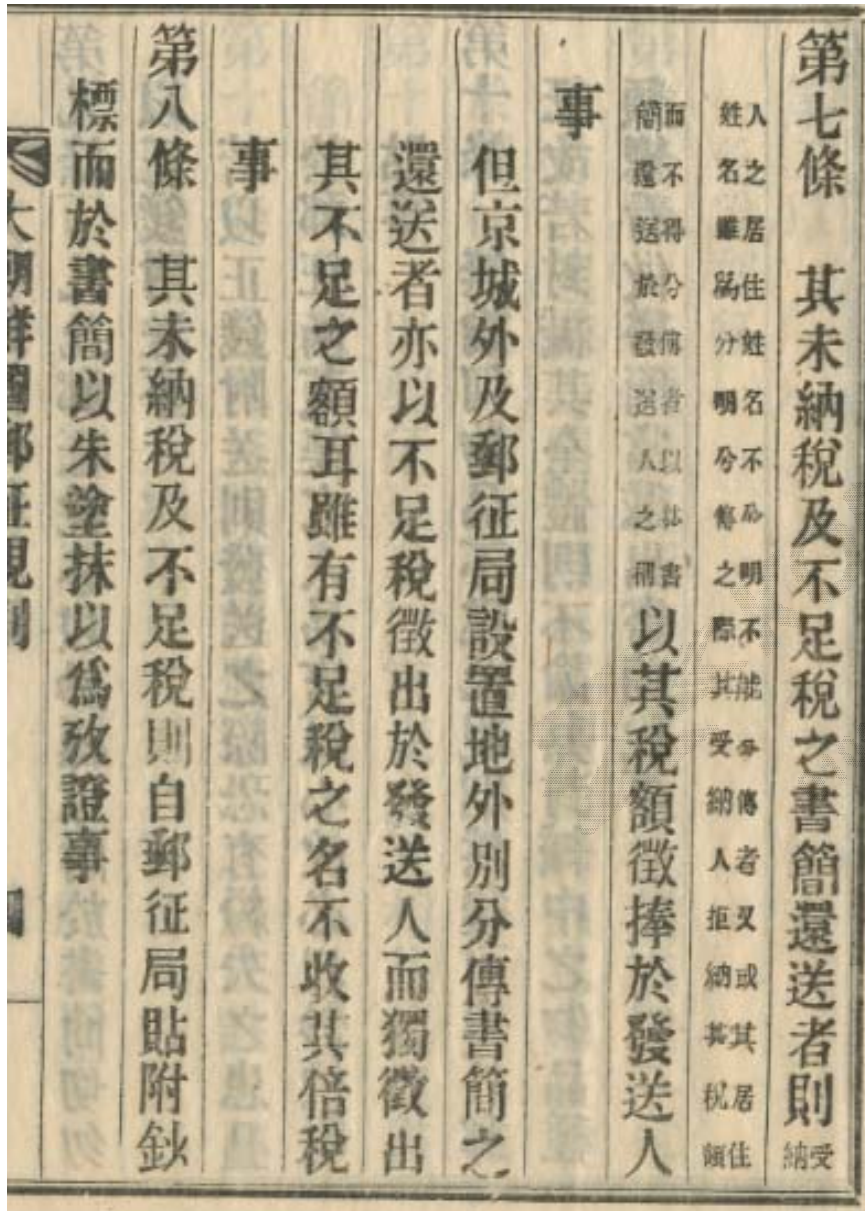 第七條　其未納稅及不足稅之書簡還送者則受納
人之居住姓名不分明不能分傳者又或其居住
姓名雖爲分明分傳之際其受納人拒納其稅額
而不得分傳者以書
簡還送於發送人之稱
以其稅額徵捧於發送人
事
但京城外及郵征局設置地外別分傳書簡之
還送者亦以不足稅徵出於發送人而獨徵出
其不足之額耳雖有不足稅之名不收其倍稅
事
第八條　其未納稅及不足稅則自郵征局貼附鈔
標而於書簡以朱塗抹以爲攷證事
大朝鮮國郵征規則